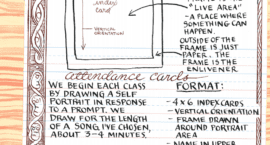 index
card
VERTICAL
ORIENTATION
TO THE
"LIVE AREA"
- A PLACE WHERE
SOMETHING CAN
HAPPEN.
OUTSIDE OF THE
FRAME IS JUST
PAPER. THE FRAME
IS THE
ENLIVENER
attendance cards
WE BEGIN EACH CLASS
BY DRAWING A SELF
PORTRAIT IN RESPONSE
TO A PROMPT. WE
DRAW FOR THE LENGTH
OF A SONG I'VE CHOSEN,
ABOUT 3-4 MINUTES.
FORMAT:
- 4 x 6 INDEX CARDS
- VERTICAL ORIENTATION
- FRAME DRAWN
AROUND PORTRAIT
AREA
- NAME IN UPPER